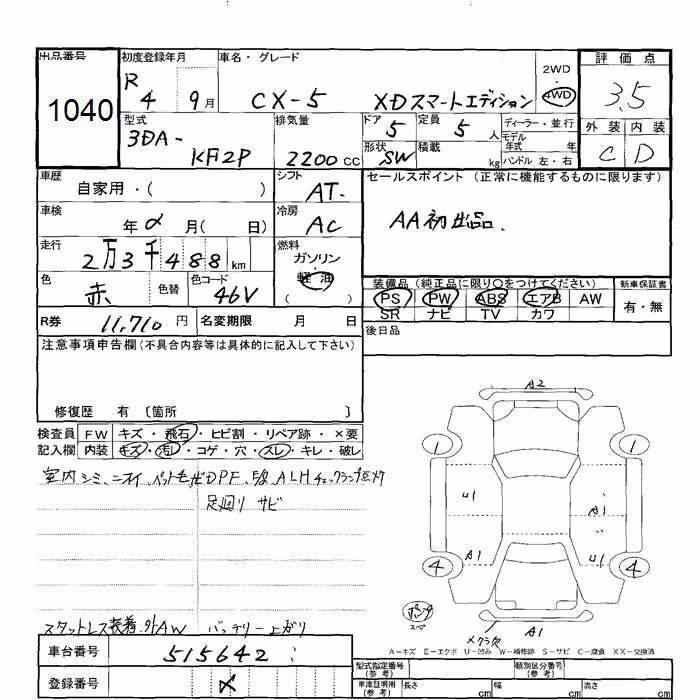 出品番号
1040
初度登録年月
R 4 9月
車名・グレード
CX-5 XDスマートエディション
2WD
4WD
評価点
3.5
外装 内装
C D
型式
3DA-
KF2P
排気量
2200cc
ドア 5
定員 5人
ディーラー・並行
モデル年式 年
形状 SW
積載 kg
ハンドル 左・右
車歴
自家用・( )
シフト
AT
セールスポイント(正常に機能するものに限ります)
AA初出品.
車検
年 月( 日)
冷房
AC
走行
2万3千488km
燃料
ガソリン
軽油
( )
色
赤
色替
色コード
46V
装備品(純正品に限り○をつけてください)
新車保証書
PS PW ABS エアB AW
有・無
SR ナビ TV カワ
R券 11,710円
名変期限 月 日
後日品
注意事項申告欄(不具合内容等は具体的に記入して下さい)
修復歴 有〔箇所 〕
検査員 FW キズ・飛石・ヒビ割・リペア跡・×要
記入欄 内装 キズ・汚レ・コゲ・穴・スレ・キレ・破レ
室内シミ、ニオイ、ペット毛 DPF, ALH チェックランプ点灯
足廻りサビ
スタットレス装着 AW バッテリー上がり
A2
1 1
U1 A1
A1 U1
4 4
パンク
スペ
メクラ穴 A1
A=キズ E=エクボ U=凹み W=補修跡 S=サビ C=腐食 XX=交換済
車台番号
515642
登録番号
型式指定番号(参考)
類別区分番号(参考)
車庫証明用(参考) 長さ cm 幅 cm 高さ cm